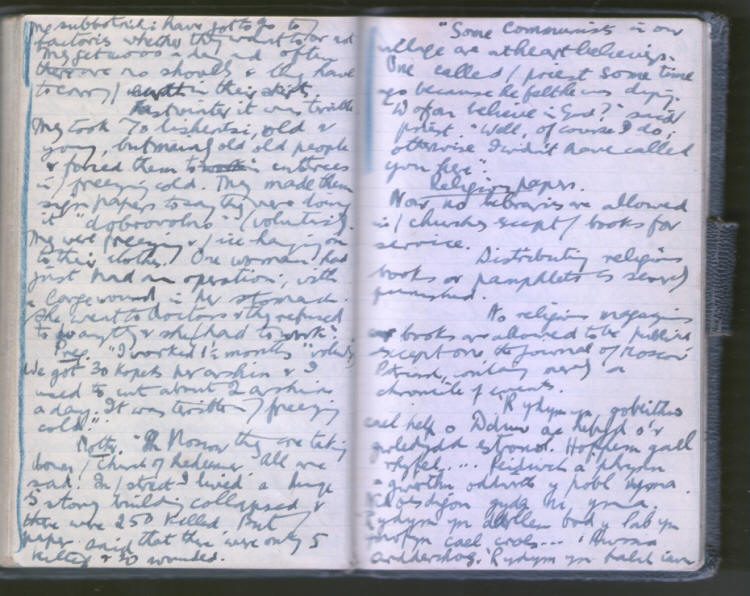 my subbotniki: I have got to go to /
factories whether they want to or not
They get 2000 a day and often
there are no shovels & they have
to carry / earth in their skirts.
Last winter it was terrible
They took 70 lishentsi, old &
young, but mainly old old people
& forced them to work cut trees
in / freezing cold. They made them
sign papers to say they were doing
it "dobrovolno" (voluntarily).
They were freezing & / ice hanging on
to their clothes. One woman had
just had an operation, with
a large wound in her stomach.
She went to doctors & they refused
to do anything & she had to work".
"I worked 1½ months
We got 30 kopeks per arshin & I
used to cut about 2 arshin
a day. It was terrible / freezing
cold".
"In Moscow they are taking
down / Church of Redeemer. All are
sad. In / street I lived a huge
5 storey building collapsed &
there were 250 killed. But /
paper said that there were only 5
killed & 30 wounded.
"Some Communists in our
village are at heart believers.
One called / priest some time
ago because he felt he was dying.
"Do you believe in God?" said
priest. "Well, of course I do;
otherwise I wouldn't have called
you here".
Religious papers.
Now no libraries are allowed
in / churches except / books for
service.
Distributing religious
books or pamphlets is severely
punished.
No religious magazines
or books are allowed to be published
except one, the Journal of Moscow
a
chronicle of events.
Rydym yn gobeithio
cael help o
gwledydd estronol. Hoffem gael
rhyfel....
oddiwrth y pobl yma.
gyda ni, yma.
Rydym yn bod y Pab yn
cael croes...
Rydym yn